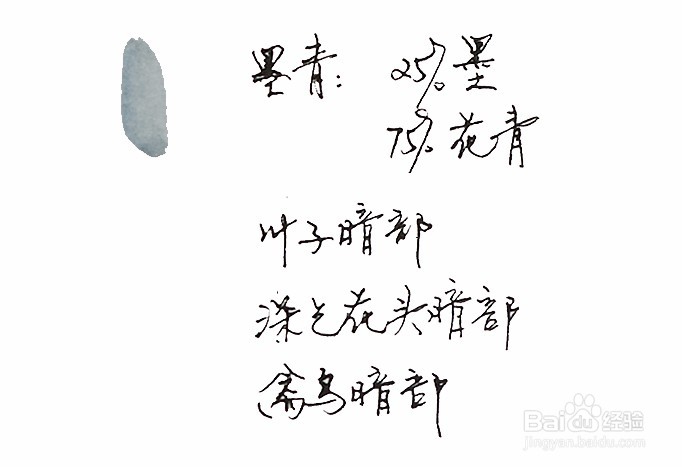 墨青： 25% 墨
75% 花青
叶子暗部
深色花头暗部
禽鸟暗部
Baidu经验
jingyan.baidu.com